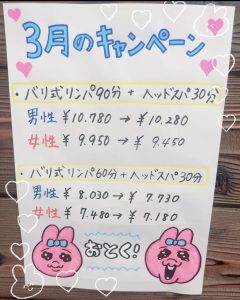 3月のキャンペーン
・バリ式リンパ90分 + ヘッドスパ30分
男性 ¥10.780 → ¥10.280
女性 ¥9.950 → ¥9.450
・バリ式リンパ60分 + ヘッドスパ30分
男性 ¥8.030 → ¥7.730
女性 ¥7.480 → ¥7.180
おとく!